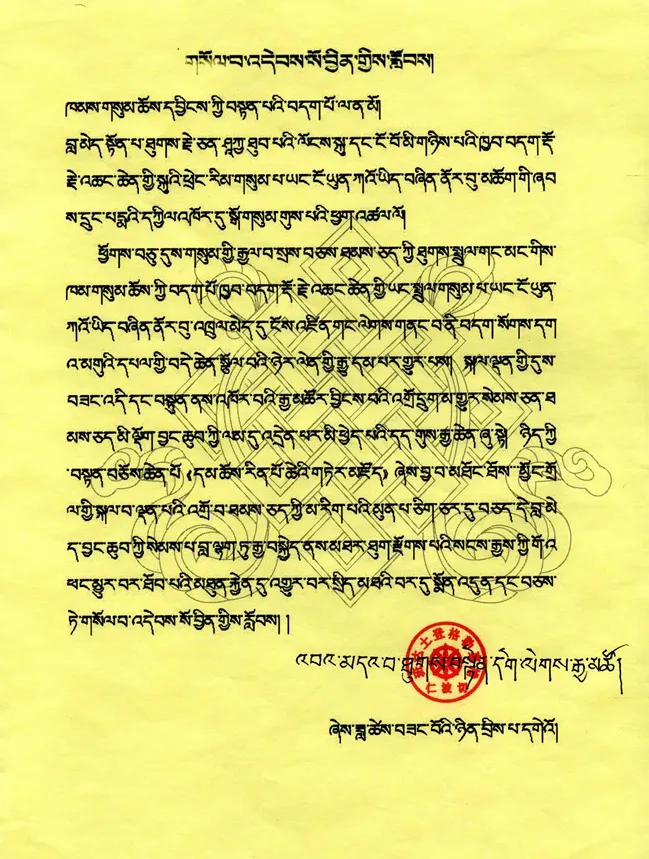 གསོལ་བ་འདེབས་སོ་བྱིན་གྱིས་རློབས།
ཁམས་གསུམ་ཆོས་དབྱིངས་ཀྱི་བསྟན་པའི་བདག་པོ་ལ་ན་མོ།
བླ་མེད་སྟོན་པ་ཐུགས་རྗེ་ཅན་ཤཱཀྱ་ཐུབ་པའི་ལོངས་སྐུ་དང་ངོ་བོ་མི་གཉིས་པའི་ཁྱབ་བདག་རྡོ་
རྗེ་འཆང་ཆེན་གྱི་སྐུའི་ཕྲེང་རིམ་གསུམ་པ་ཡང་ངོ་ཡུན་ཀའོ་ཡིད་བཞིན་ནོར་བུ་མཆོག་གི་ཞབ
ས་དྲུང་པདྨའི་དཀྱིལ་འཁོར་དུ་སྒོ་གསུམ་གུས་པའི་ཕྱག་འཚལ་ལོ།
ཕྱོགས་བཅུ་དུས་གསུམ་གྱི་རྒྱལ་བ་སྲས་བཅས་ཐམས་ཅད་ཀྱི་ཐུགས་སྤྲུལ་གང་མང་གིས་
ཁམ་གསུམ་ཆོས་ཀྱི་བདག་པོ་ཁྱབ་བདག་རྡོ་རྗེ་འཆང་ཆེན་གྱི་ཡང་སྤྲུལ་གསུམ་པ་ཡང་ངོ་ཡུན་
ཀའོ་ཡིད་བཞིན་ནོར་བུ་འཁྲུལ་མེད་དུ་ངོས་འཛིན་གང་ལེགས་གནང་བ་ནི་བདག་སོགས་དག
འ་མགུའི་དཔལ་གྱི་བདེ་ཆེན་སྩོལ་བའི་ཉེར་ལེན་གྱི་རྒྱུ་དམ་པར་གྱུར་པས། སྐལ་ལྡན་གྱི་དུས་
བཟང་འདི་དང་བསྟུན་ནས་འཁོར་བའི་རྒྱ་མཚོར་བྱིངས་བའི་འགྲོ་དྲུག་མ་གྱུར་སེམས་ཅན་ཐ
མས་ཅད་མི་ལྡོག་བྱང་ཆུབ་ཀྱི་ལམ་དུ་འདྲེན་པར་མི་ཕྱེད་པའི་དད་གུས་རྒྱ་ཆེན་ཞུ་སྟེ། ཉིད་ཀྱི
་བསྟན་བཅོས་ཆེན་པོ《དམ་ཆོས་རིན་པོ་ཆེའི་གཏེར་མཛོད》ཞེས་བྱ་བ་མཐོང་ཐོས་སྤྱོང་གྲོ
ལ་གྱི་སྐལ་བ་ལྡན་པའི་འགྲོ་བ་ཐམས་ཅད་ཀྱི་མ་རིག་པའི་མུན་པ་ཅིག་ཅར་དུ་བཅད་དེ་བླ་མེ
ད་བྱང་ཆུབ་ཀྱི་སེམས་པ་བླ་ལྷག་ཏུ་རྒྱ་བསྐྱེད་ནས་མཐར་ཐུག་རྫོགས་པའི་སངས་རྒྱས་ཀྱི་གོ་འ
ཕང་མྱུར་བར་ཐོབ་པའི་མཐུན་རྐྱེན་དུ་འགྱུར་བར་སྲིད་མཐའི་བར་དུ་སྨོན་འདུན་དང་བཅས་
ཏེ་གསོལ་བ་འདེབས་སོ་བྱིན་གྱིས་རློབས། །
འབའ་མདའ་བ་ཐུགས་བསྟན་དགེ་ལེགས་རྒྱ་མཚོ།
仁波切
ཞེས་ཟླ་ཚེས་བཟང་བོའི་ཉིན་བྲིས་པ་དགེའོ།